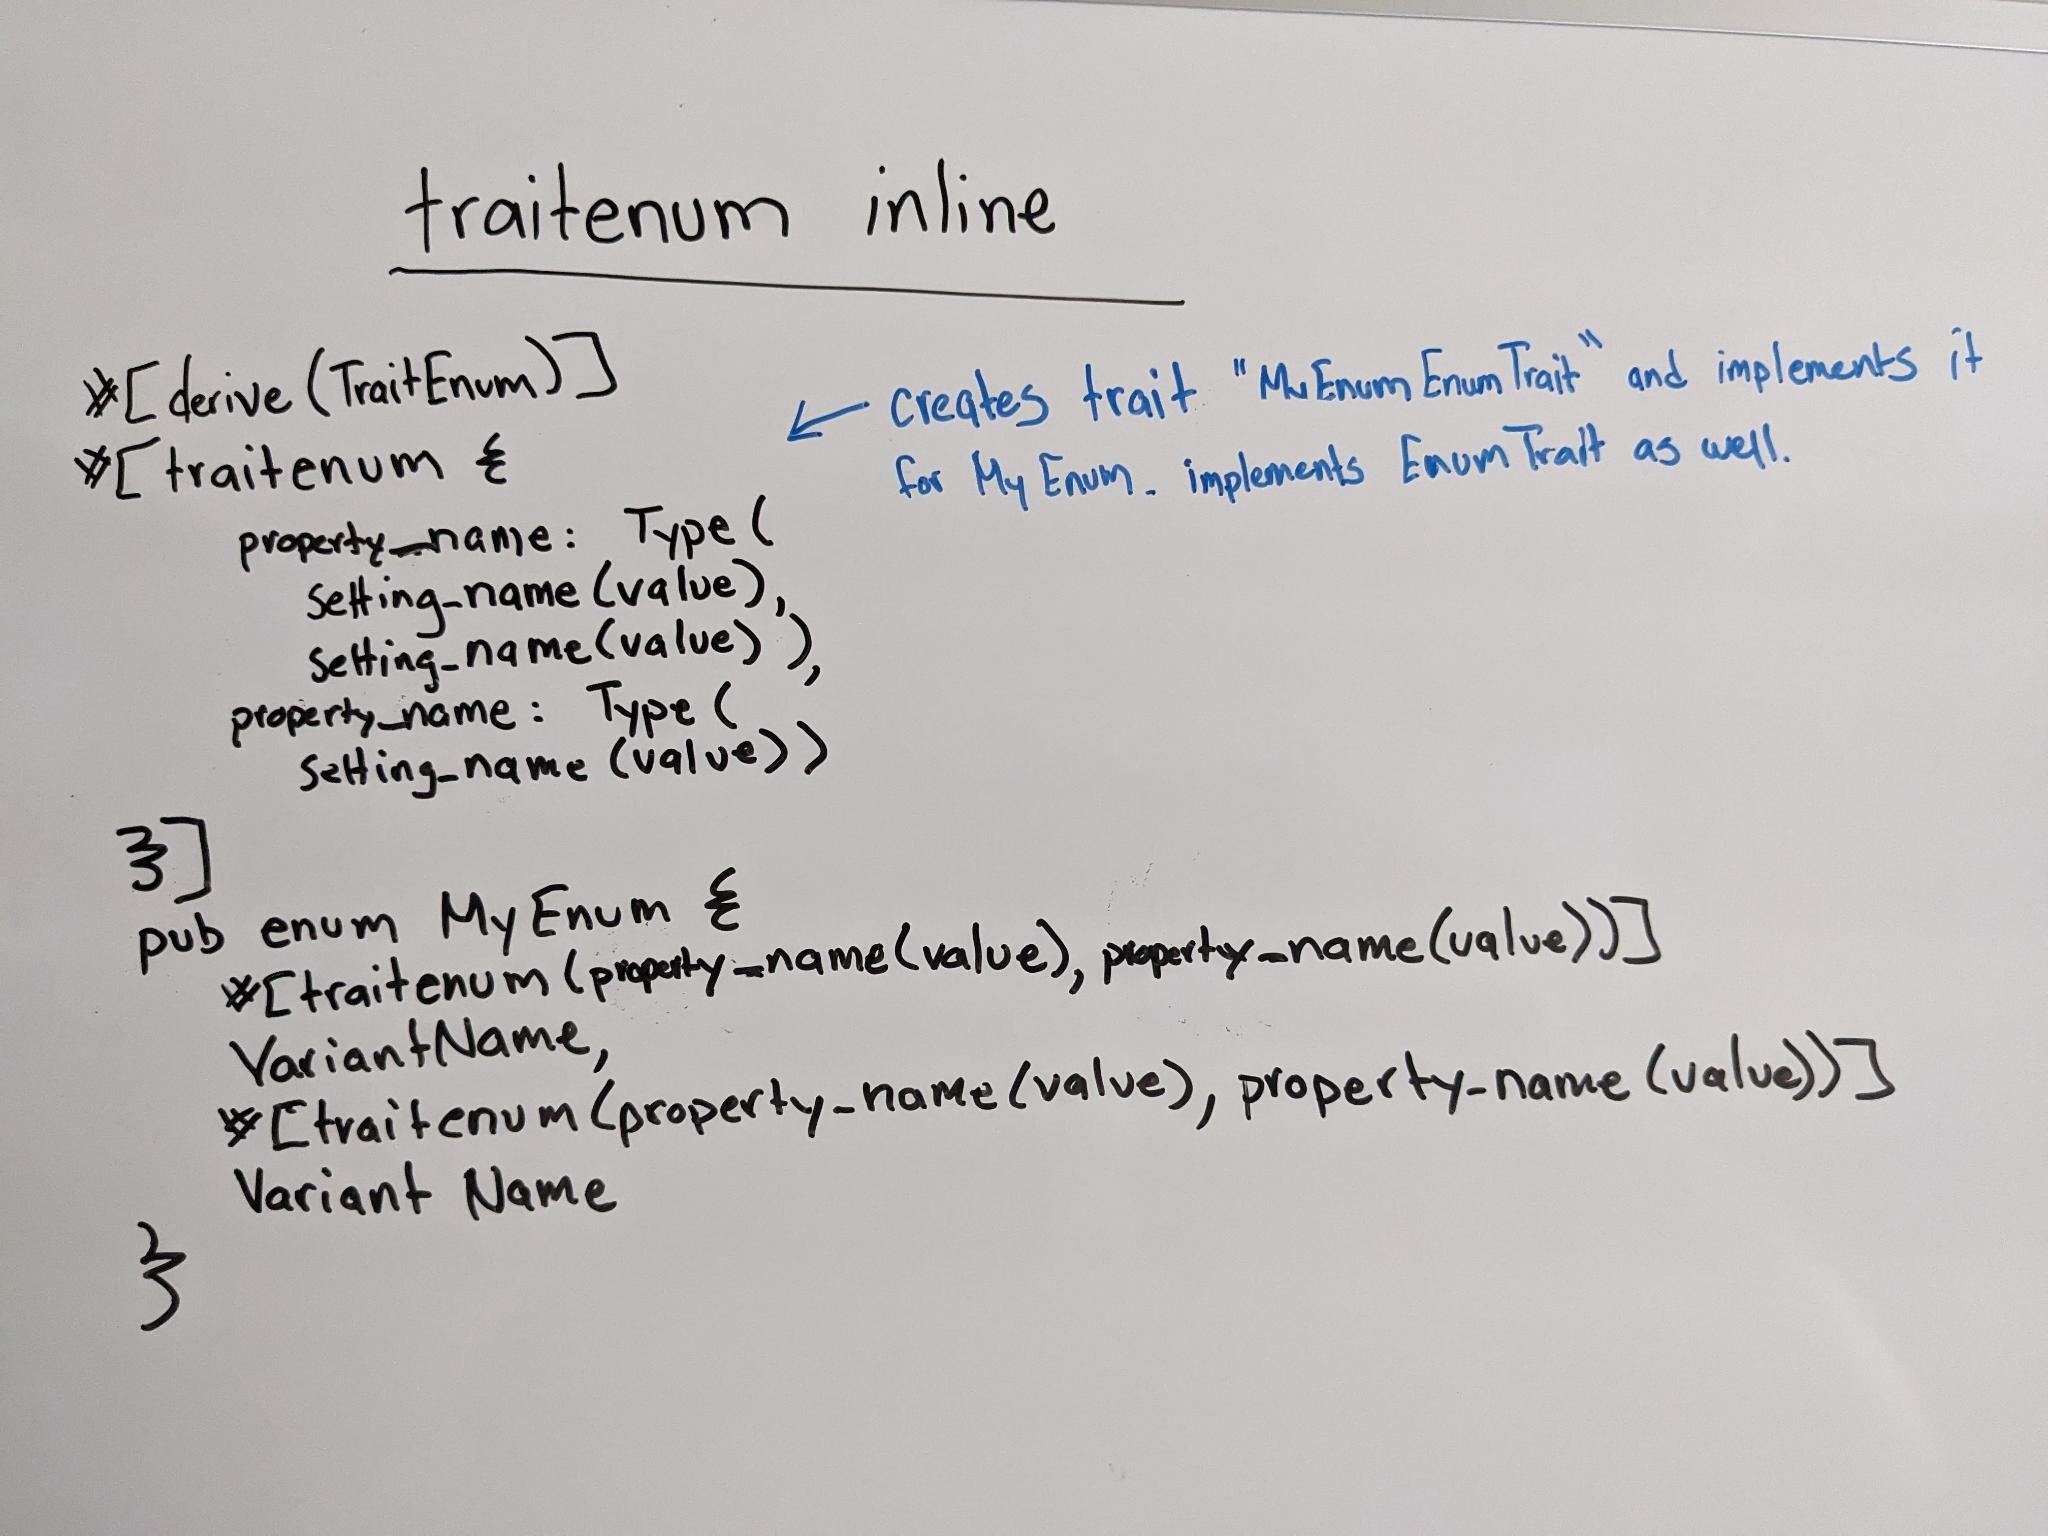 traitenum inline
#[derive(TraitEnum)]
#[traitenum {
property_name: Type(
setting_name(value),
setting_name(value)),
property_name: Type(
setting_name(value))
}]
pub enum MyEnum {
#[traitenum(property_name(value), property_name(value))]
VariantName,
#[traitenum(property_name(value), property_name(value))]
Variant Name
}
← creates trait "MyEnumEnumTrait" and implements it
for MyEnum. implements EnumTrait as well.